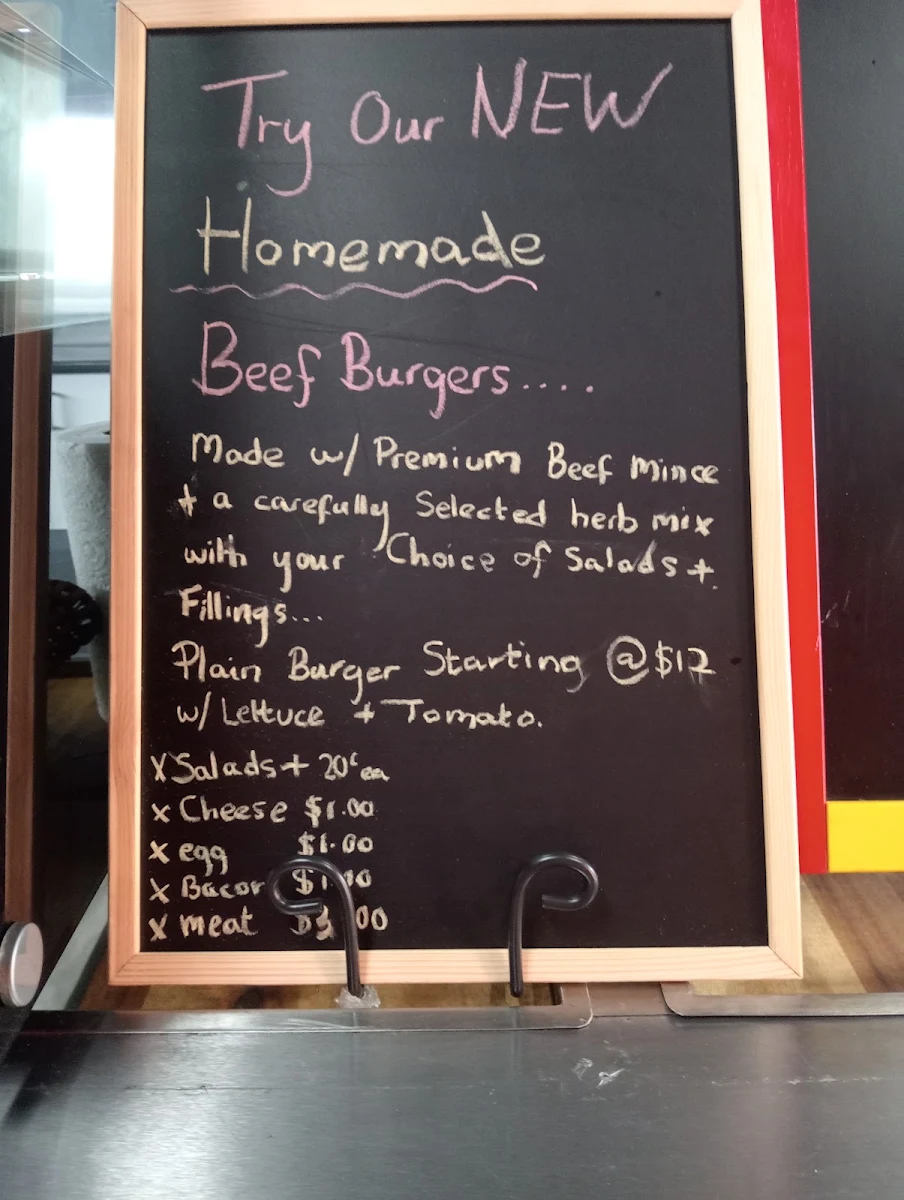 Try Our NEW
Homemade
Beef Burgers....
Made w/ Premium Beef mince
+ a carefully Selected herb mix
with your Choice of Salads +
Fillings...
Plain Burger Starting @ $12
w/ Lettuce + Tomato.
x Salads + 20c ea
x Cheese $1.00
x egg $1.00
x Bacon
x meat